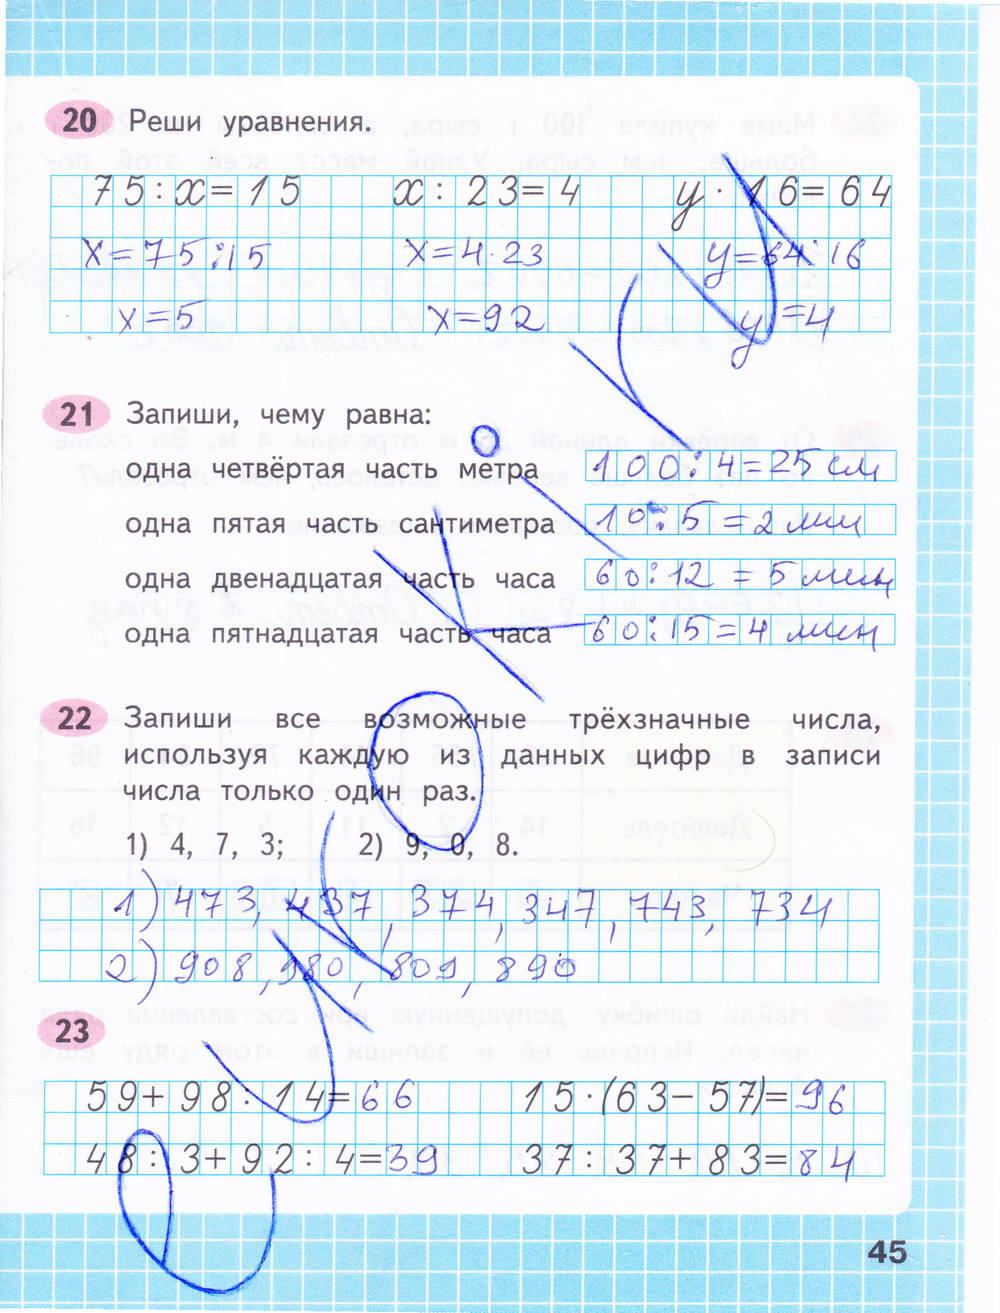 20 Реши уравнения.
75 : x = 15 x : 23 = 4 y · 16 = 64
x = 75 : 15 x = 4 · 23 y = 64 : 16
x = 5 x = 92 y = 4
21 Запиши, чему равна:
одна четвёртая часть метра 100 : 4 = 25 см
одна пятая часть сантиметра 10 : 5 = 2 мм
одна двенадцатая часть часа 60 : 12 = 5 мин
одна пятнадцатая часть часа 60 : 15 = 4 мин
22 Запиши все возможные трёхзначные числа,
используя каждую из данных цифр в записи
числа только один раз.
1) 4, 7, 3; 2) 9, 0, 8.
1) 473, 437, 374, 347, 743, 734
2) 908, 980, 809, 890
23
59 + 98 : 14 = 66 15 · (63 − 57) = 96
48 : 3 + 92 : 4 = 39 37 : 37 + 83 = 84
45